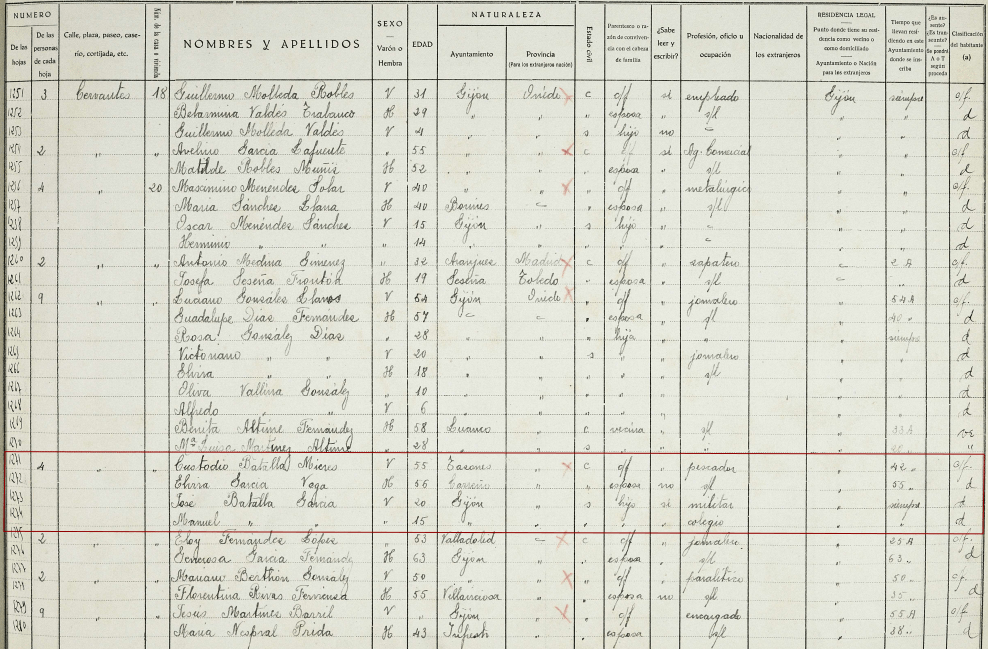 NUMERO
De las hojas
De las personas de cada hoja
Calle, plaza, paseo, caserío, cortijada, etc.
Núm. de la casa o vivienda
NOMBRES Y APELLIDOS
SEXO — Varón o Hembra
EDAD
NATURALEZA
Ayuntamiento
Provincia (Para los extranjeros nación)
Estado civil
Parentesco o razón de convivencia con el cabeza de familia
¿Sabe leer y escribir?
Profesión, oficio u ocupación
Nacionalidad de los extranjeros
RESIDENCIA LEGAL
Punto donde tiene su residencia como vecino o como domiciliado
Ayuntamiento o Nación para los extranjeros
Tiempo que llevan residiendo en este Ayuntamiento donde se inscribe
¿Es ausente? ¿Es transeunte? se pondrá A o T según proceda
Clasificación del habitante (a)
1251 3 Cervantes 18 Guillermo Molleda Robles V 31 Gijón Oviedo c c/f si empleado Gijón siempre c/f.
1252 Belarmina Valdés Trabanco H 29 " " " esposa " s/l " " d
1253 Guillermo Molleda Valdés V 4 " " s hijo no " " d
1254 2 " " Avelino García Lafuente " 55 " " c c/f si Ag. Comercial " " c/f
1255 Matilde Robles Muñiz H 52 " " " esposa " s/l " " d
1256 4 " 20 Maximino Menéndez Solar V 40 " " " c/f " metalúrgico " " c/f.
1257 María Sánchez Llana H 40 " " esposa " s/l " " d
1258 Oscar Menéndez Sánchez V 15 Gijón " s hijo " " " d
1259 Herminio " " " 14 " " " " " " " d
1260 2 " " Antonio Medina Gimenez " 32 Aranjuez Madrid c c/f " zapatero 2 A c/f.
1261 Josefa Seseña Frontón H 19 Seseña Toledo " esposa " s/l " d
1262 9 " " Luciano González Llanos V 54 Gijón Oviedo " c/f " jornalero " 54 A c/f.
1263 Guadalupe Días Fernández H 57 " " " esposa " s/l " 40 " d
1264 Rosa González Días " 28 " " " hija " " " siempre d
1265 Victoriano " " V 20 " " s " " jornalero " " d
1266 Elvira " " H 18 " " " " " s/l " " d
1267 Oliva Vallina González " 10 " " " " " " " d
1268 Alfredo " " V 6 " " " " " " " d
1269 Benita Altime Fernández H 58 Luanco " c vecina " s/l " 33 A ve
1270 Mª Luisa Martínez Altime " 28 " " s " " " " "
1271 4 " " Custodio Batalla Mieres V 55 Tazones " c c/f " pescador " 42 " c/f.
1272 Elvira García Vega H 56 Carreño " " esposa no s/l " 55 " d
1273 José Batalla García V 20 Gijón " s hijo si militar " siempre d
1274 Manuel " " " 15 " " " " " colegio " " d
1275 2 " " Eloy Fernández López " 53 Valladolid " c c/f " jornalero " 25 A c/f.
1276 Generosa García Fernández H 63 Gijón " " esposa " s/l " 63 " d
1277 2 " " Mariano Berthón González V 50 " " " c/f " paralítico " 50 " c/f.
Florentina Rivas H 55 Villaviciosa " " esposa no s/l " 35 " d
1279 9 " " Jesús Martínez Barril V Gijón " " c/f " encargado " 55 A c/f.
1280 María Nespral Prida H 43 Infiesto " " esposa " s/l " 38 " d